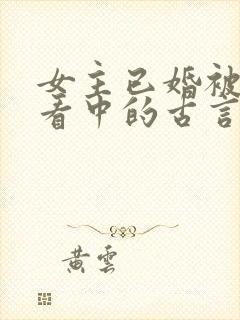 女主已婚被
看中的古言
黄雲